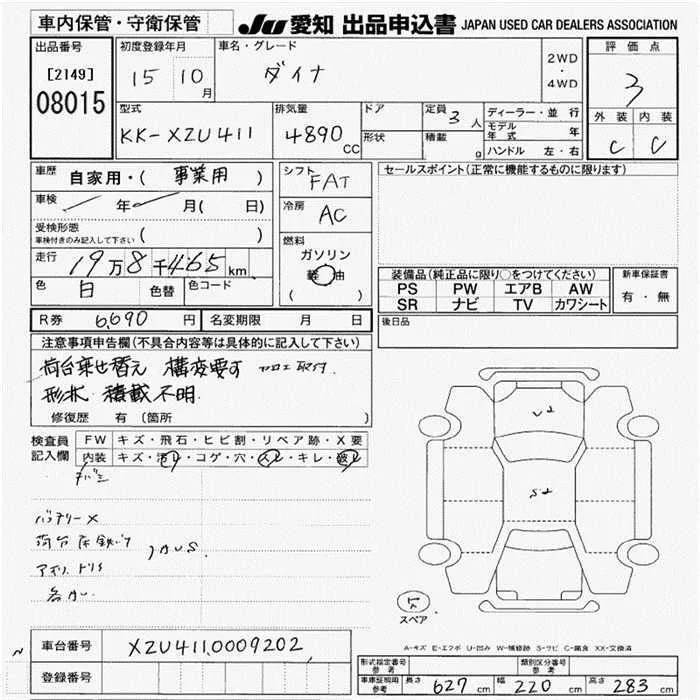 車内保管・守衛保管
JU 愛知 出品申込書 JAPAN USED CAR DEALERS ASSOCIATION
出品番号
[2149]
08015
初度登録年月
15 10月
車名・グレード
ダイナ
2WD・4WD
評価点
3
外装 内装
C C
型式
KK-XZU411
排気量
4890 CC
ドア
形状
定員
3人
積載
ディーラー・並行
モデル年式 年
ハンドル 左・右
車歴 自家用・( 事業用 )
車検 年 月( 日)
受検形態
車検付きのみ記入して下さい ( )
走行 19万8千465 km
色 白 色替 色コード
シフト
FAT
冷房
AC
燃料
ガソリン
軽油
( )
セールスポイント(正常に機能するものに限ります)
装備品(純正品に限り○をつけてください)
PS PW エアB AW
SR ナビ TV カワシート
新車保証書
有・無
後日品
R券 6,690 円 名変期限 月 日
注意事項申告欄(不具合内容等は具体的に記入して下さい)
荷台乗せ替え 構変要す カロエ取付.
形状. 積載不明.
修復歴 有 (箇所 )
検査員記入欄
FW キズ・飛石・ヒビ割・リペア跡・X要
内装 キズ・汚レ・コゲ・穴・スレ・キレ・破レ
バッテリーX
スペア
A-キズ E-エクボ U-凹み W-補修跡 S-サビ C-腐食 XX-交換済
車台番号 XZU411.0009202
登録番号
形式指定番号 参考
類別区分番号 参考
車庫証明用 参考 長さ 627 cm 幅 220 cm 高さ 283 cm